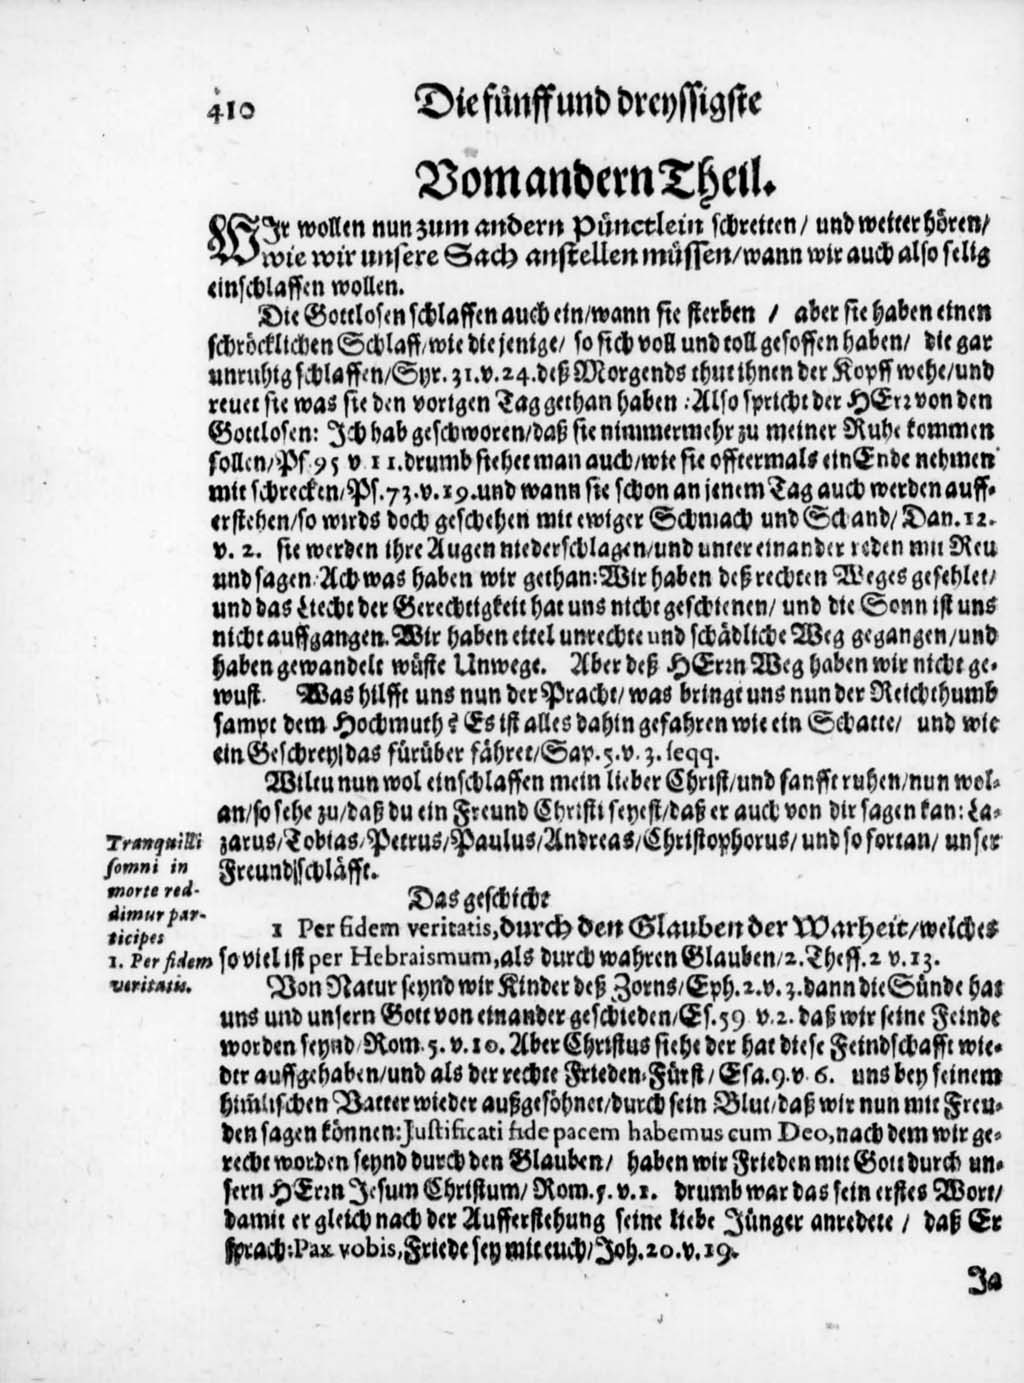 410 Die fünff und dreyssigste
Vom andern Theil.
WIr wollen nun zum andern Pünctlein schreiten / und weiter hören/
wie wir unsere Sach anstellen müssen/wann wir auch also selig
einschlaffen wollen.
Die Gottlosen schlaffen auch ein/wann sie sterben / aber sie haben einen
schröcklichen Schlaff/wie die jenige/ so sich voll und toll gesoffen haben/ die gar
unruhig schlaffen/Syr. 31. v. 24. deß Morgends thut ihnen der Kopff wehe/und
reuet sie was sie den vorigen Tag gethan haben : Also spricht der HErr von den
Gottlosen: Jch hab geschworen/daß sie nimmermehr zu meiner Ruhe kommen
sollen/Ps 95 v 11. drumb siehet man auch/wie sie offtermals ein Ende nehmen
mit schrecken/Ps. 73. v. 19. und wann sie schon an jenem Tag auch werden auff-
erstehen/so wirds doch geschehen mit ewiger Schmach und Schand/Dan. 12.
v. 2. sie werden ihre Augen niederschlagen/und unter einander reden mit Reu
und sagen: Ach was haben wir gethan: Wir haben deß rechten Weges gefehlet/
und das Liecht der Gerechtigkeit hat uns nicht geschienen/ und die Sonn ist uns
nicht auffgangen. Wir haben eitel unrechte und schädliche Weg gegangen/und
haben gewandelt wüste Unwege. Aber deß HErrn Weg haben wir nicht ge-
wust. Was hilfft uns nun der Pracht/ was bringt uns nun der Reichthumb
sampt dem Hochmuth? Es ist alles dahin gefahren wie ein Schatte/ und wie
ein Geschrey/das fürüber fähret/Sap. 5. v. 3. seqq.
Wiltu nun wol einschlaffen mein lieber Christ/und sanfft ruhen/nun wol-
an/so sehe zu/daß du ein Freund Christi seyest/daß er auch von dir sagen kan: La-
zarus/Tobias/Petrus/Paulus/Andreas/Christophorus/ und so fortan/ unser
Freund schläfft.
Tranquilli
somni in
morte red-
dimur par-
ticipes
1. Per fidem
veritatis.
Das geschicht
1 Per fidem veritatis, durch den Glauben der Warheit/welches
so viel ist per Hebraismum, als durch wahren Glauben/2. Thess. 2 v. 13.
Von Natur seynd wir Kinder deß Zorns/Eph. 2. v. 3. dann die Sünde hat
uns und unsern Gott von einander geschieden/Es. 59 v. 2. daß wir seine Feinde
worden seynd/Rom. 5. v. 10. Aber Christus siehe der hat diese Feindschafft wie-
der auffgehaben/und als der rechte Frieden-Fürst/Esa. 9. v 6. uns bey seinem
him̃lischen Vatter wieder außgesöhnet/durch sein Blut/daß wir nun mit Freu-
den sagen können: Justificati fide pacem habemus cum Deo, nach dem wir ge-
recht worden seynd durch den Glauben/ haben wir Frieden mit Gott durch un-
sern HErrn Jesum Christum/Rom. 5. v. 1. drumb war das sein erstes Wort/
damit er gleich nach der Aufferstehung seine liebe Jünger anredete / daß Er
sprach: Pax vobis, Friede sey mit euch/Joh. 20. v. 19.
Ja